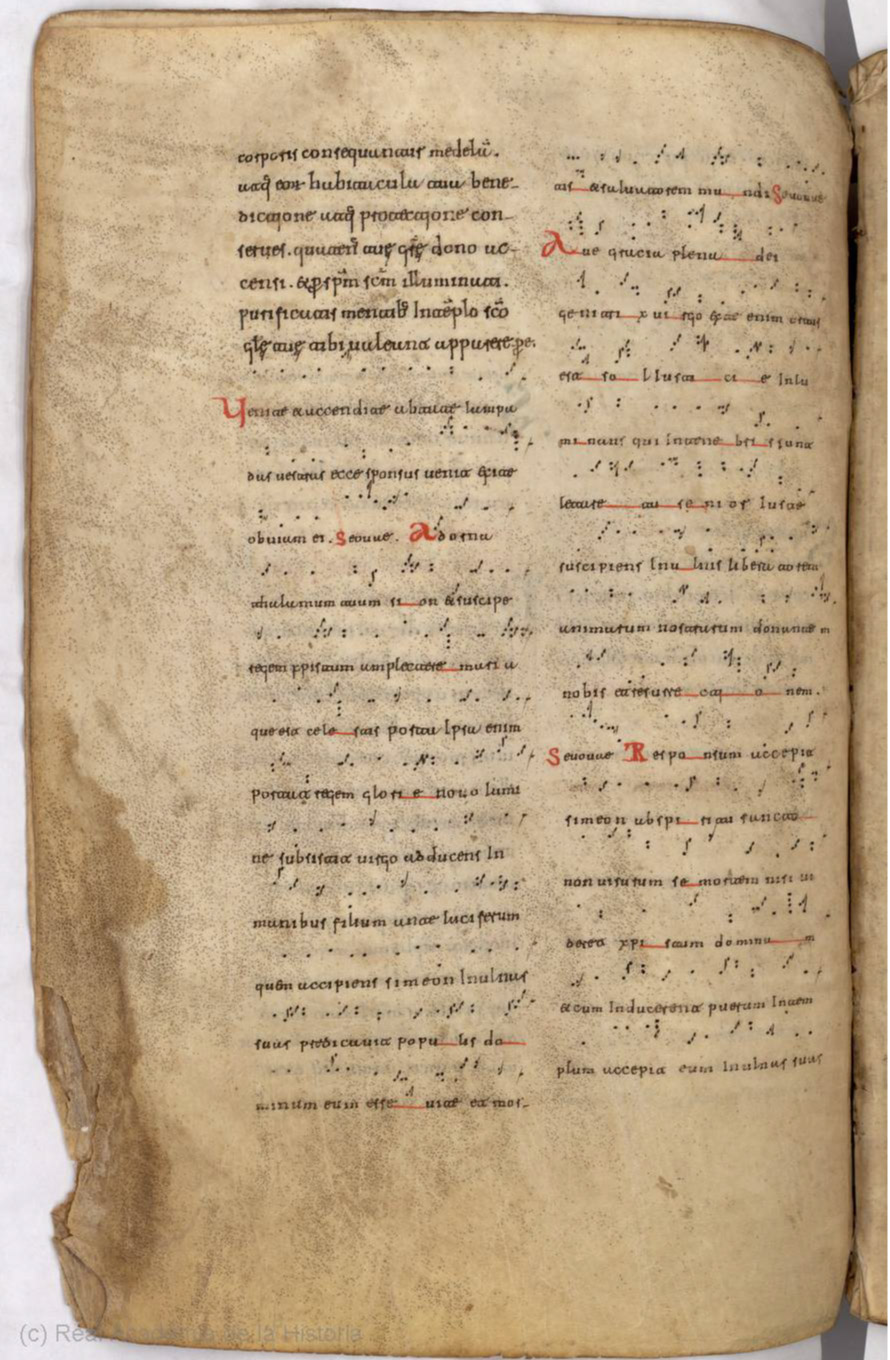 corporis consequantur medelā.
atq; eor habitacula tua bene-
dictione atq; protectione con-
serues. quaten tuę grę dono ac-
censi. & p spm scm illuminati.
purificatis mentib; In teplo sco
glę tuę tibi ualeant apparere. pe.
Uenite accendite lampa
das uestras ecce sponsus uenit exite
obuiam ei. Seouae. Adorna
thalamum tuum si on & suscipe
regem xpistum amplectere mari a
que est cele stis porta Ipsa enim
portat regem glori e nouo lumi
ne subsistit uirgo adducens In
manibus filium ante luciferum
quem accipiens simeon In ulnas
suas predicauit popu lis do
minum eum esse uite et mor-
tis & saluatorem mu ndi Seuouae
Aue gratia plena dei
genitri x ui rgo ex te enim ortus
est so l Iusti ci e Inlu
minans qui In tene bri s sunt
letare tu se ni or Iuste
suscipiens In u lnis liberatorem
animarum nostrarum donantem
nobis et resurre cti o nem.
Seuouae Respo nsum accepit
simeon ab spi ritu sancto
non uisurum se mortem nisi ui
deret xpi stum dominu m
et cum Inducerent puerum In tem
plum accepit eum In ulnas suas
(c) Real Academia de la Historia